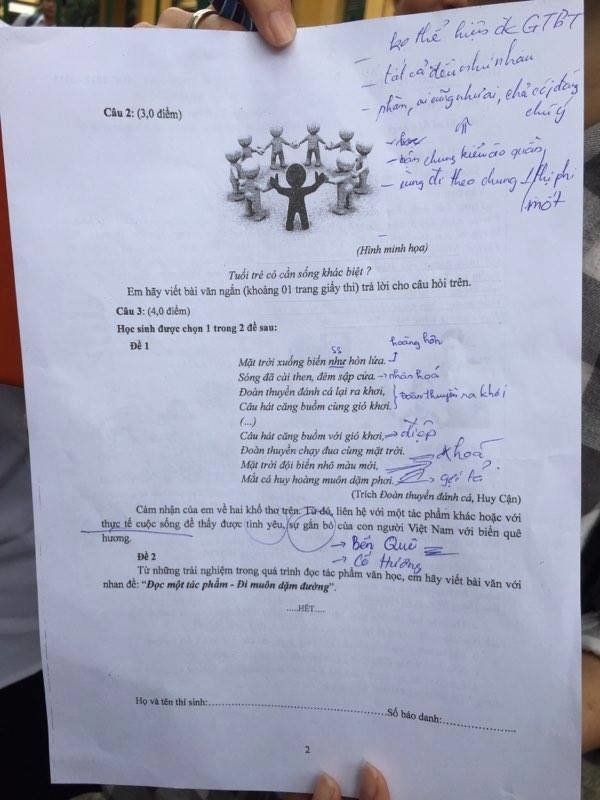 ko thể hiện đc GTBT
- tất cả đều như nhau
- nhàm, ai cũng như ai, chả có j đáng chú ý
- bán chung kiểu áo quần
- cùng đi theo chung 1 thị phi
một
Câu 2: (3,0 điểm)
(Hình minh họa)
Tuổi trẻ có cần sống khác biệt ?
Em hãy viết bài văn ngắn (khoảng 01 trang giấy thi) trả lời cho câu hỏi trên.
Câu 3: (4,0 điểm)
Học sinh được chọn 1 trong 2 đề sau:
Đề 1
ss
hoàng hôn
Mặt trời xuống biển như hòn lửa.
Sóng đã cài then, đêm sập cửa. → nhân hoá
Đoàn thuyền đánh cá lại ra khơi,
Câu hát căng buồm cùng gió khơi. } Đoàn thuyền ra khơi
(...)
Câu hát căng buồm với gió khơi, → điệp
Đoàn thuyền chạy đua cùng mặt trời.
Mặt trời đội biển nhô màu mới, khoá
Mắt cá huy hoàng muôn dặm phơi. gợi tả
(Trích Đoàn thuyền đánh cá, Huy Cận)
Cảm nhận của em về hai khổ thơ trên. Từ đó, liên hệ với một tác phẩm khác hoặc với
thực tế cuộc sống để thấy được tình yêu, sự gắn bó của con người Việt Nam với biển quê
hương.
→ Bến Quê
→ Cố Hương
Đề 2
Từ những trải nghiệm trong quá trình đọc tác phẩm văn học, em hãy viết bài văn với
nhan đề: "Đọc một tác phẩm - Đi muôn dặm đường".
....HẾT....
Họ và tên thí sinh:..................................................Số báo danh:.....................
2